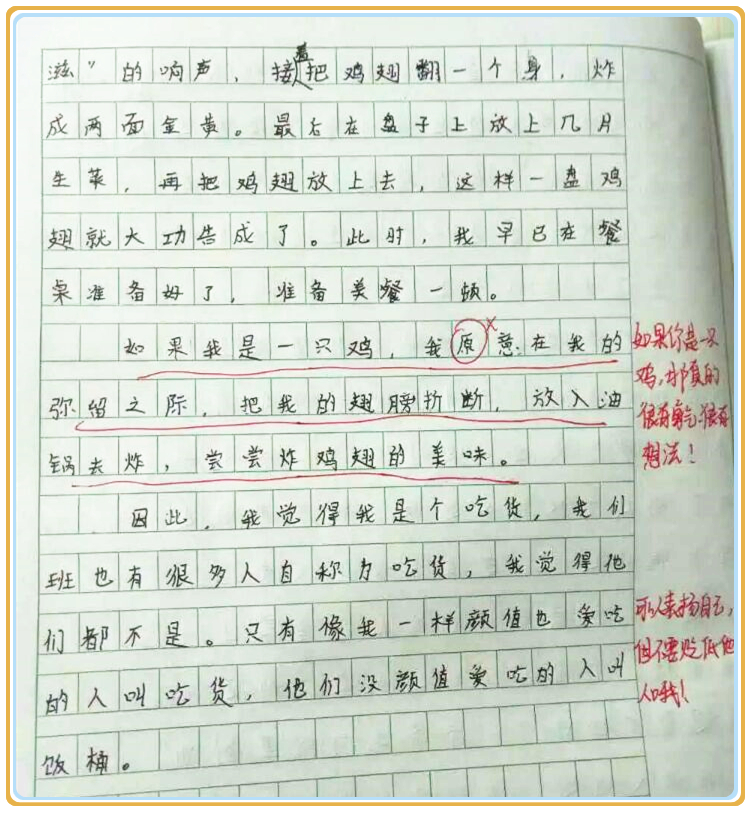 滋”的响声，接着把鸡翅翻一个身，炸
成两面金黄。最后在盘子上放上几片
生菜，再把鸡翅放上去，这样一盘鸡
翅就大功告成了。此时，我早已在餐
桌准备好了，准备美餐一顿。
如果我是一只鸡，我原意在我的
弥留之际，把我的翅膀折断，放入油
锅去炸，尝尝炸鸡翅的美味。
因此，我觉得我是个吃货，我们
班也有很多人自称为吃货，我觉得他
们都不是。只有像我一样颜值也爱吃
的人叫吃货，他们没颜值爱吃的人叫
饭桶。
如果你是一只
鸡，那真的
很有勇气、很有
想法！
可以表扬自己，
但不要贬低他
人哦！